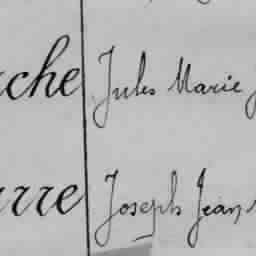 che Jules Marie
rre Joseph Jean